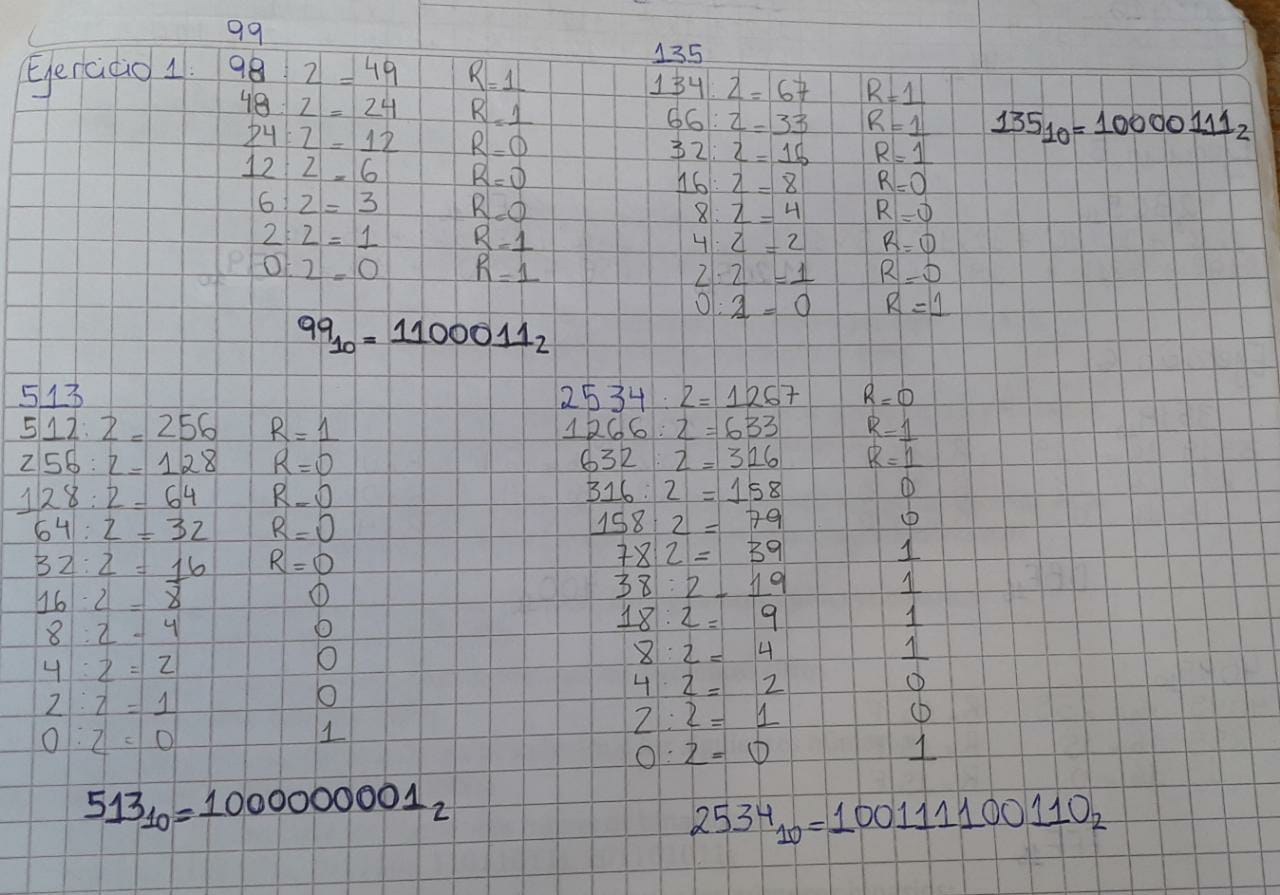 99
Ejercicio 1: 98 : 2 = 49 R=1
48 : 2 = 24 R=1
24 : 2 = 12 R=0
12 : 2 = 6 R=0
6 : 2 = 3 R=0
2 : 2 = 1 R=1
0 : 2 = 0 R=1
99₁₀ = 1100011₂
135
134 : 2 = 67 R=1
66 : 2 = 33 R=1
135₁₀ = 10000111₂
32 : 2 = 16 R=1
16 : 2 = 8 R=0
8 : 2 = 4 R=0
4 : 2 = 2 R=0
2 : 2 = 1 R=0
0 : 2 = 0 R=1
513
512 : 2 = 256 R=1
256 : 2 = 128 R=0
128 : 2 = 64 R=0
64 : 2 = 32 R=0
32 : 2 = 16 R=0
16 : 2 = 8 0
8 : 2 = 4 0
4 : 2 = 2 0
2 : 2 = 1 0
0 : 2 = 0 1
513₁₀ = 1000000001₂
2534 : 2 = 1267 R=0
1266 : 2 = 633 R=1
632 : 2 = 316 R=1
316 : 2 = 158 0
158 : 2 = 79 0
78 2 = 39 1
38 : 2 = 19 1
18 : 2 = 9 1
8 : 2 = 4 1
4 : 2 = 2 0
2 : 2 = 1 0
0 : 2 = 0 1
2534₁₀ = 100111100110₂